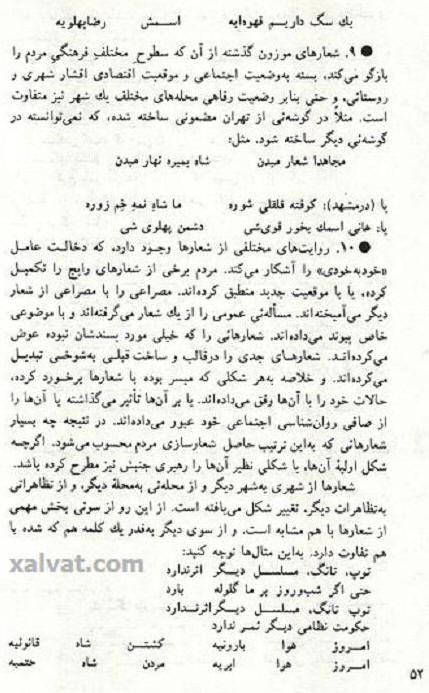 یك سگ داریـم قهوه‌ایه اسـمش رضاپهلویه
● ۹. شعارهای موزون گذشته از آن که سطوح مختلفِ فرهنگیِ مردم را
بازگو می‌کند، بسته به‌وضعیت اجتماعی و موقعیت اقتصادی اقشار شهری و
روستائی، و حتی بنابر وضعیت رفاهی محله‌های مختلف یك شهر نیز متفاوت
است. مثلاً در گوشه‌ئی از تهران مضمونی ساخته شده، که نمی‌توانسته در
گوشه‌ئی دیگر ساخته شود. مثل:
مجاهدا شعار میدن شاه بمیره نهار میدن
یا (درمشهد): گرفته قلقلی شوره ما شاهِ نمِه خِم زوره
یا: هانی اسمك بخور قوی‌شی دشمن پهلوی شی
● ۱۰. روایت‌های مختلفی از شعارها وجـود دارد، که دخالت عامـل
«خودبه‌خودی» را آشکار می‌کند. مردم برخی از شعارهای رایج را تکمیل
کرده، یا با موقعیت جدید منطبق کرده‌اند. مصراعی را با مصراعی از شعار
دیگر می‌آمیخته‌اند. مسأله‌ئی عمومی را از یك شعار می‌گرفته‌اند و با موضوعی
خاص پیوند می‌داده‌اند. شعارهائی را که خیلی مورد پسندشان نبوده عوض
می‌کرده‌انـد. شعارهـای جدی را درقالب و ساخت قبلـی به‌شوخـی تبدیـل
می‌کرده‌اند. و خلاصه به‌هر شکلی که میسر بوده با شعارها برخـورد کرده،
حالات خود را با آن‌ها وفق می‌داده‌اند. یا بر آن‌ها تأثیر می‌گذاشته یا آن‌ها را
از صافی روان‌شناسی اجتماعی خود عبور می‌داده‌اند. در نتیجه چه بسیار
شعارهائی که به‌این ترتیب حاصل شعارسازی مردم محسوب می‌شود. اگرچـه
شکل اولیهٔ آن‌ها، یا شکلی نظیر آن‌ها را رهبری جنبش نیز مطرح کرده باشد.
شعارها از شهری به‌شهر دیگر و از محله‌ئی به‌محلهٔ دیگر، و از تظاهراتی
به‌تظاهرات دیگر، تغییر شکل می‌یافته است. از این رو از سوئی بخش مهمی
از شعارها با هم مشابه است، و از سوی دیگر به‌قدر یك کلمه هم که شده با
هم تفاوت دارد. به‌این مثال‌ها توجه کنید:
xalvat.com
توپ، تانگ، مسلسـل دیـگر اثرندارد
حتی اگر شب‌وروز بر ما گلوله بارد
توپ تانك، مسلسـل دیـگر اثرنـدارد
حکومت نظامی دیگر ثمـر ندارد
امـروز هـوا بارونیه کشتـن شاه قانونیه
امـروز هـوا ابریـه مردن شاه حتمیه
۵۲